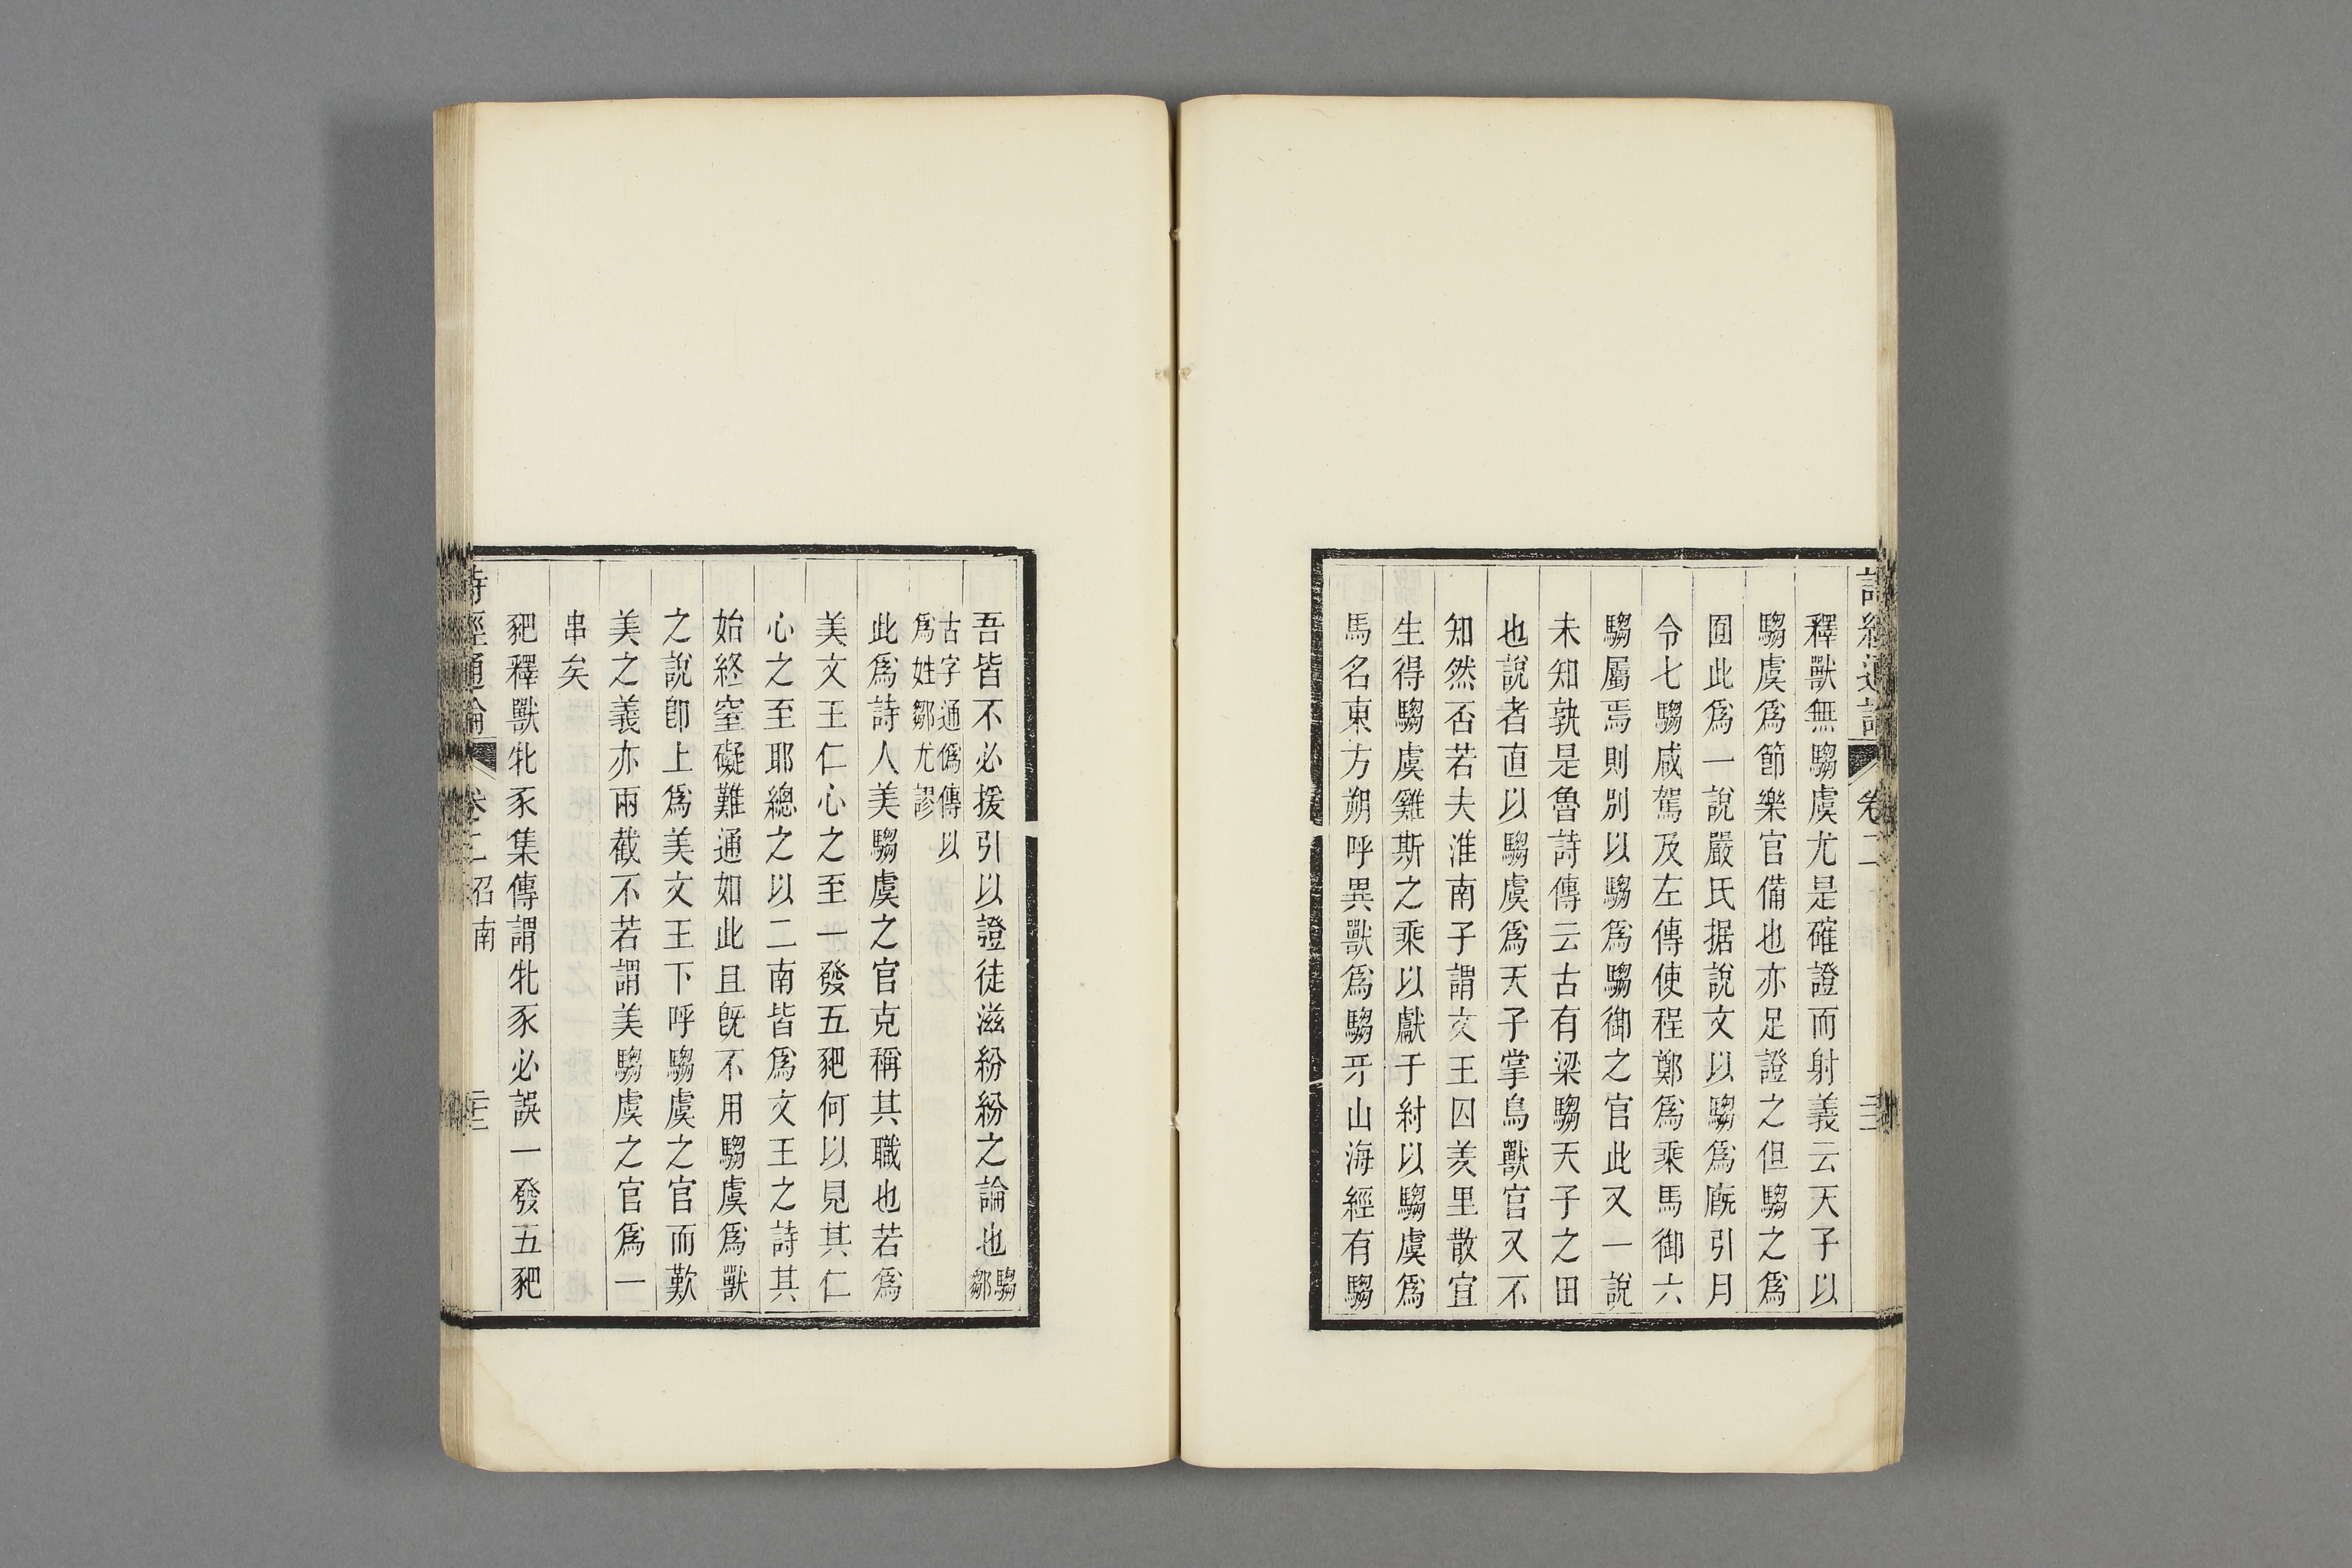 詩經通論 卷二
釋獸無騶虞尤是確證而射義云天子以
騶虞爲節樂官備也亦足證之但騶之爲
囿此爲一說嚴氏据說文以騶爲廐引月
令七騶咸駕及左傳使程鄭爲乘馬御六
騶屬焉則別以騶爲騶御之官此又一說
未知孰是魯詩傳云古有梁騶天子之田
也說者直以騶虞爲天子掌鳥獸官又不
知然否若夫淮南子謂文王囚羑里散宜
生得騶虞雞斯之乘以獻于紂以騶虞爲
馬名東方朔呼異獸爲騶牙山海經有騶
吾皆不必援引以證徒滋紛紛之論也騶鄒
古字通僞傳以
爲姓鄒尤謬
此爲詩人美騶虞之官克稱其職也若爲
美文王仁心之至一發五豝何以見其仁
心之至耶總之以二南皆爲文王之詩其
始終窒礙難通如此且旣不用騶虞爲獸
之說卽上爲美文王下呼騶虞之官而歎
美之義亦兩截不若謂美騶虞之官爲一
串矣
豝釋獸牝豕集傳謂牡豕必誤一發五豝
詩經通論 卷二 召南